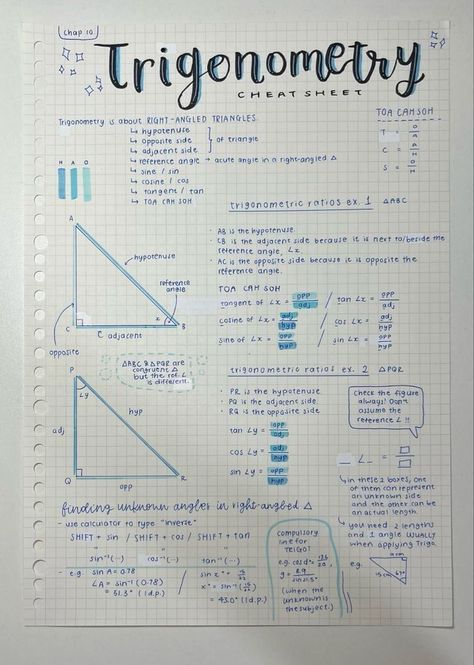 Chap 10
Trigonometry
CHEAT SHEET
Trigonometry is about RIGHT-ANGLED TRIANGLES
↳ hypotenuse
↳ opposite side } of triangle
↳ adjacent side
↳ reference angle → acute angle in a right-angled △
↳ sine / sin
↳ cosine / cos
↳ tangent / tan
↳ TOA CAH SOH
H A O
TOA CAH SOH
T = O/A
C = A/H
S = O/H
trigonometric ratios ex. 1 △ABC
· AB is the hypotenuse.
· CB is the adjacent side because it is next to/beside the
reference angle, ∠x.
· AC is the opposite side because it is opposite the
reference angle.
TOA CAH SOH
tangent of ∠x = opp/adj / tan ∠x = opp/adj
cosine of ∠x = adj/hyp / cos ∠x = adj/hyp
sine of ∠x = opp/hyp / sin ∠x = opp/hyp
A
hypotenuse
reference
angle
x
C
B
C adjacent
opposite
△ABC & △PQR are
congruent △
but the ref. ∠
is different.
trigonometric ratios ex. 2 △PQR
· PR is the hypotenuse
· PQ is the adjacent side.
· RQ is the opposite side
tan ∠y = opp/adj
cos ∠y = adj/hyp
sin ∠y = opp/hyp
P
∠y
adj
hyp
Q
opp
R
Check the figure
always! Don't
assume the
reference ∠ !!
_ ∠_ = □/□
↳ in these 2 boxes, one
of them can represent
an unknown side
and the other can be
an actual length.
↳ you need 2 lengths
and 1 angle USUALLY
when applying Trigo.
e.g.
finding unknown angles in right-angled △
- use calculator to type "inverse"
SHIFT + sin / SHIFT + cos / SHIFT + tan
" " "
sin⁻¹(...) cos⁻¹(...) tan⁻¹(...)
- e.g. sin A = 0.78
∠A = sin⁻¹(0.78)
= 51.3° (1d.p.)
= 43.0° (1d.p.)
compulsory
line for
TRIGO!
(when the
unknown is
the subject.)